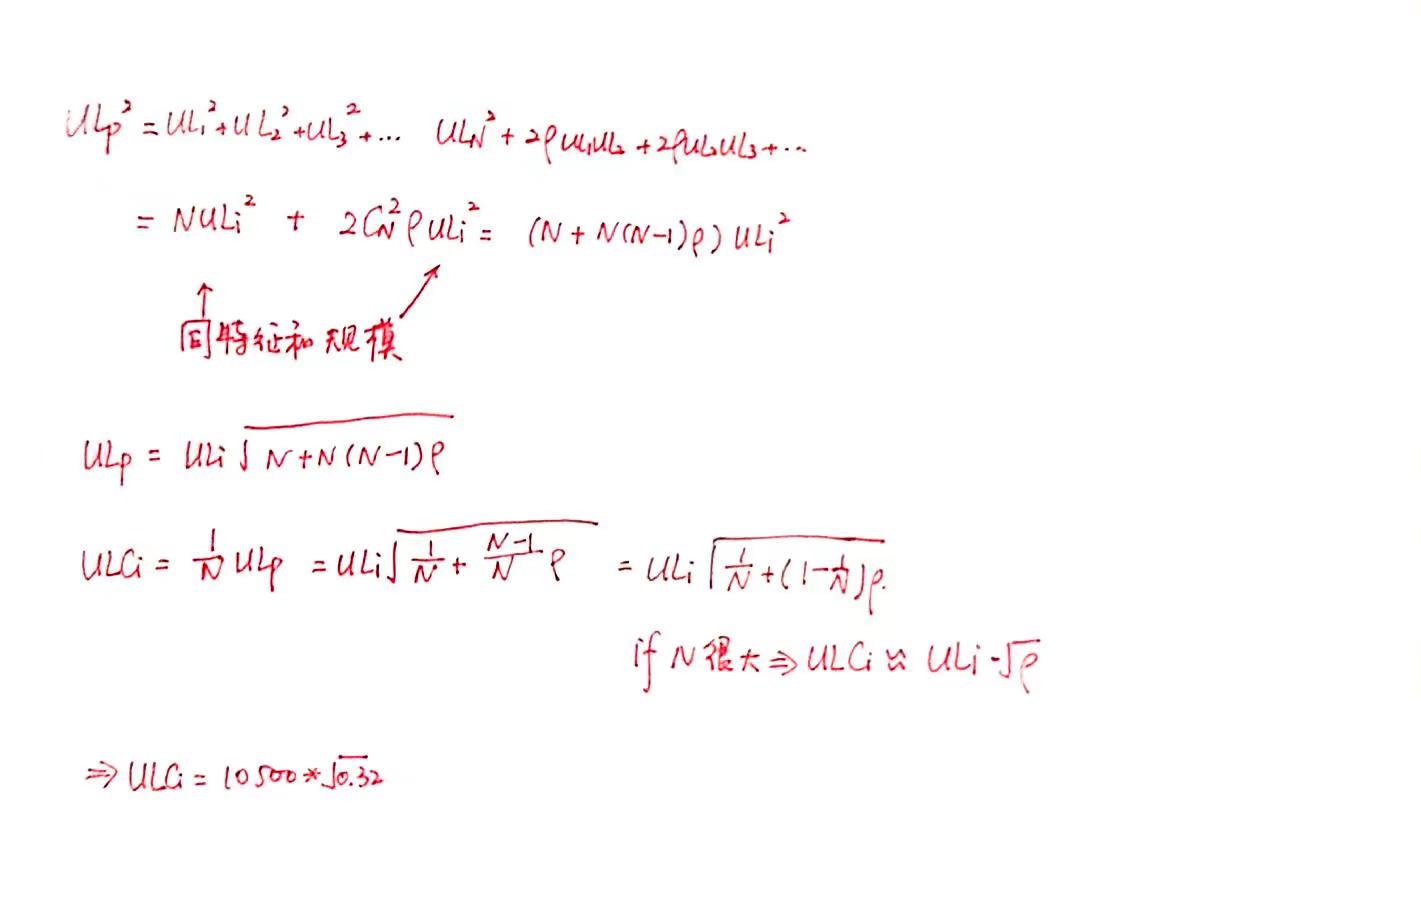 ULp² = UL₁² + UL₂² + UL₃² + ... ULN² + 2ρUL₁UL₂ + 2ρUL₂UL₃ + ...
= NULi² + 2C_N²ρULi² = (N + N(N-1)ρ) ULi²
同特征和规模
ULp = ULi√(N+N(N-1)ρ)
ULCi = 1/N ULp = ULi√(1/N + (N-1)/N ρ) = ULi√(1/N + (1-1/N)ρ.
if N 很大 ⇒ ULCi ≈ ULi·√ρ
⇒ ULCi = 10500*√0.32